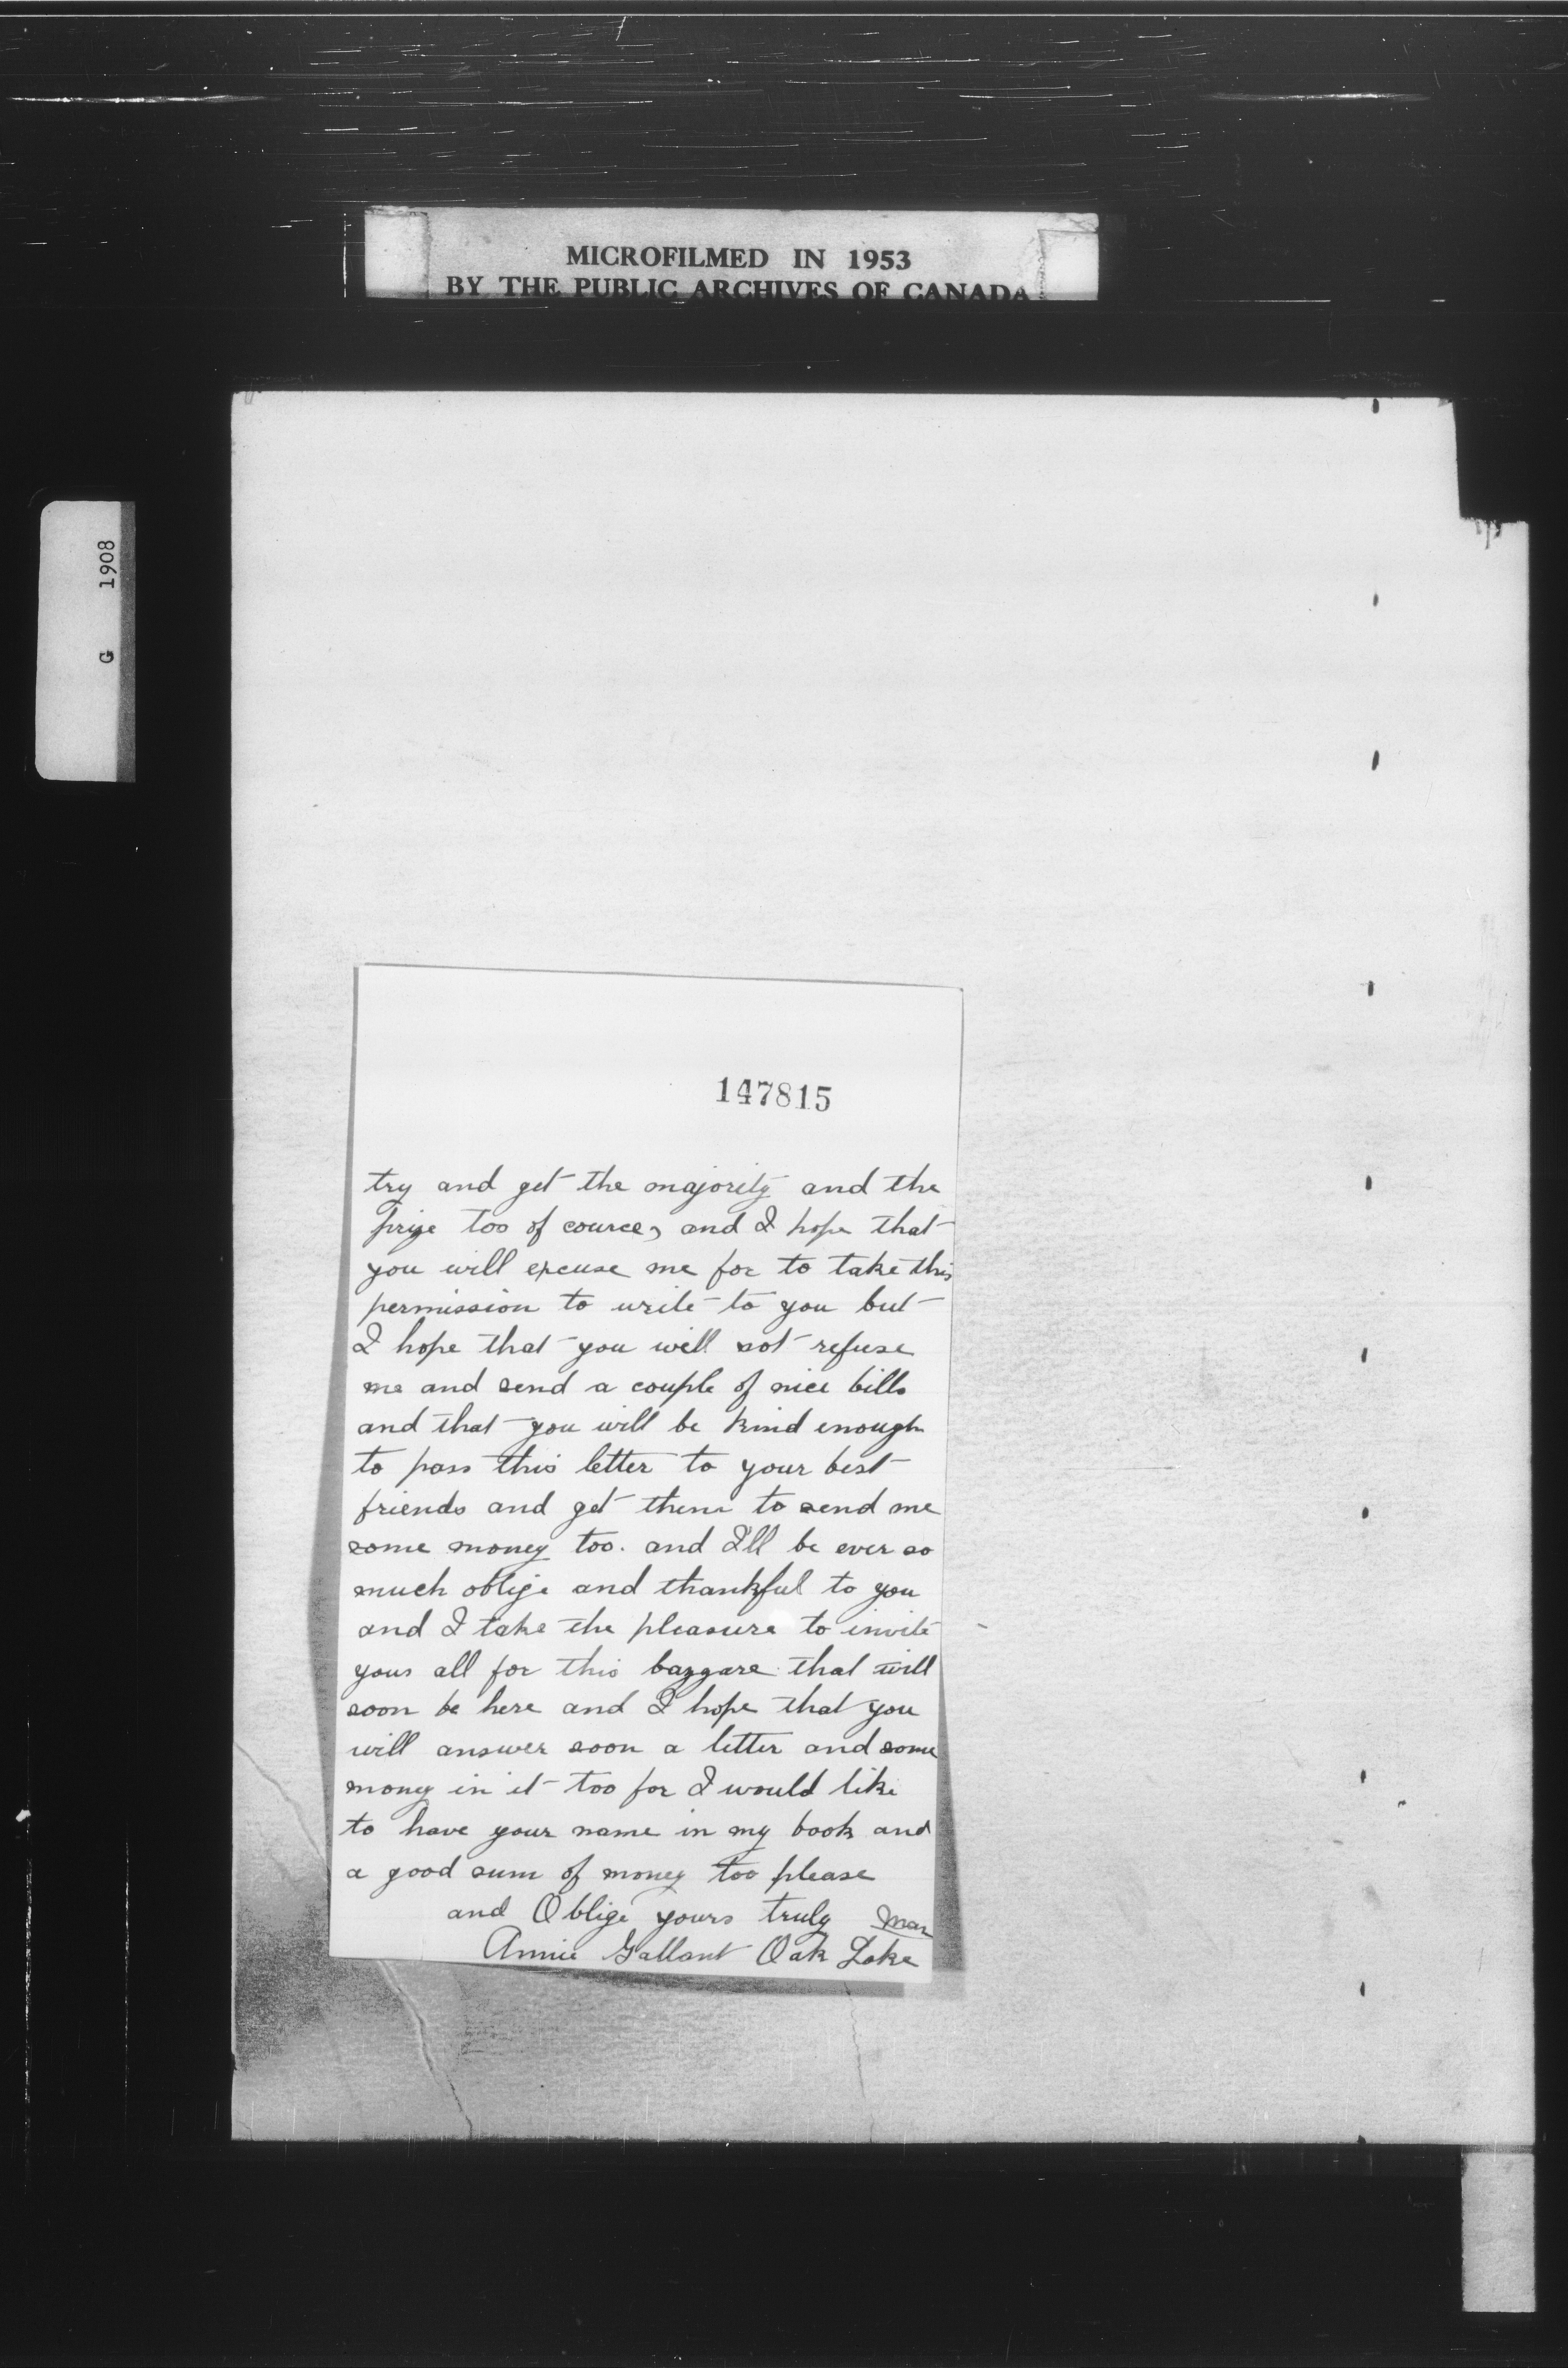 MICROFILMED IN 1953
BY THE PUBLIC ARCHIVES OF CANADA
G 1908
147815
try and get the majority and the
prize too of cource, and I hope that
you will excuse me for to take this
permission to write to you but
I hope that you will not refuse
me and send a couple of nice bills
and that you will be kind enough
to pass this letter to your best
friends and get them to send me
some money too. and I'll be ever so
much oblige and thankful to you
and I take the pleasure to invite
yous all for this bazzare that will
soon be here and I hope that you
will answer soon a letter and some
mony in it too for I would like
to have your name in my book and
a good sum of money too please
and Oblige yours truly Man
Annie Gallant Oak Lake